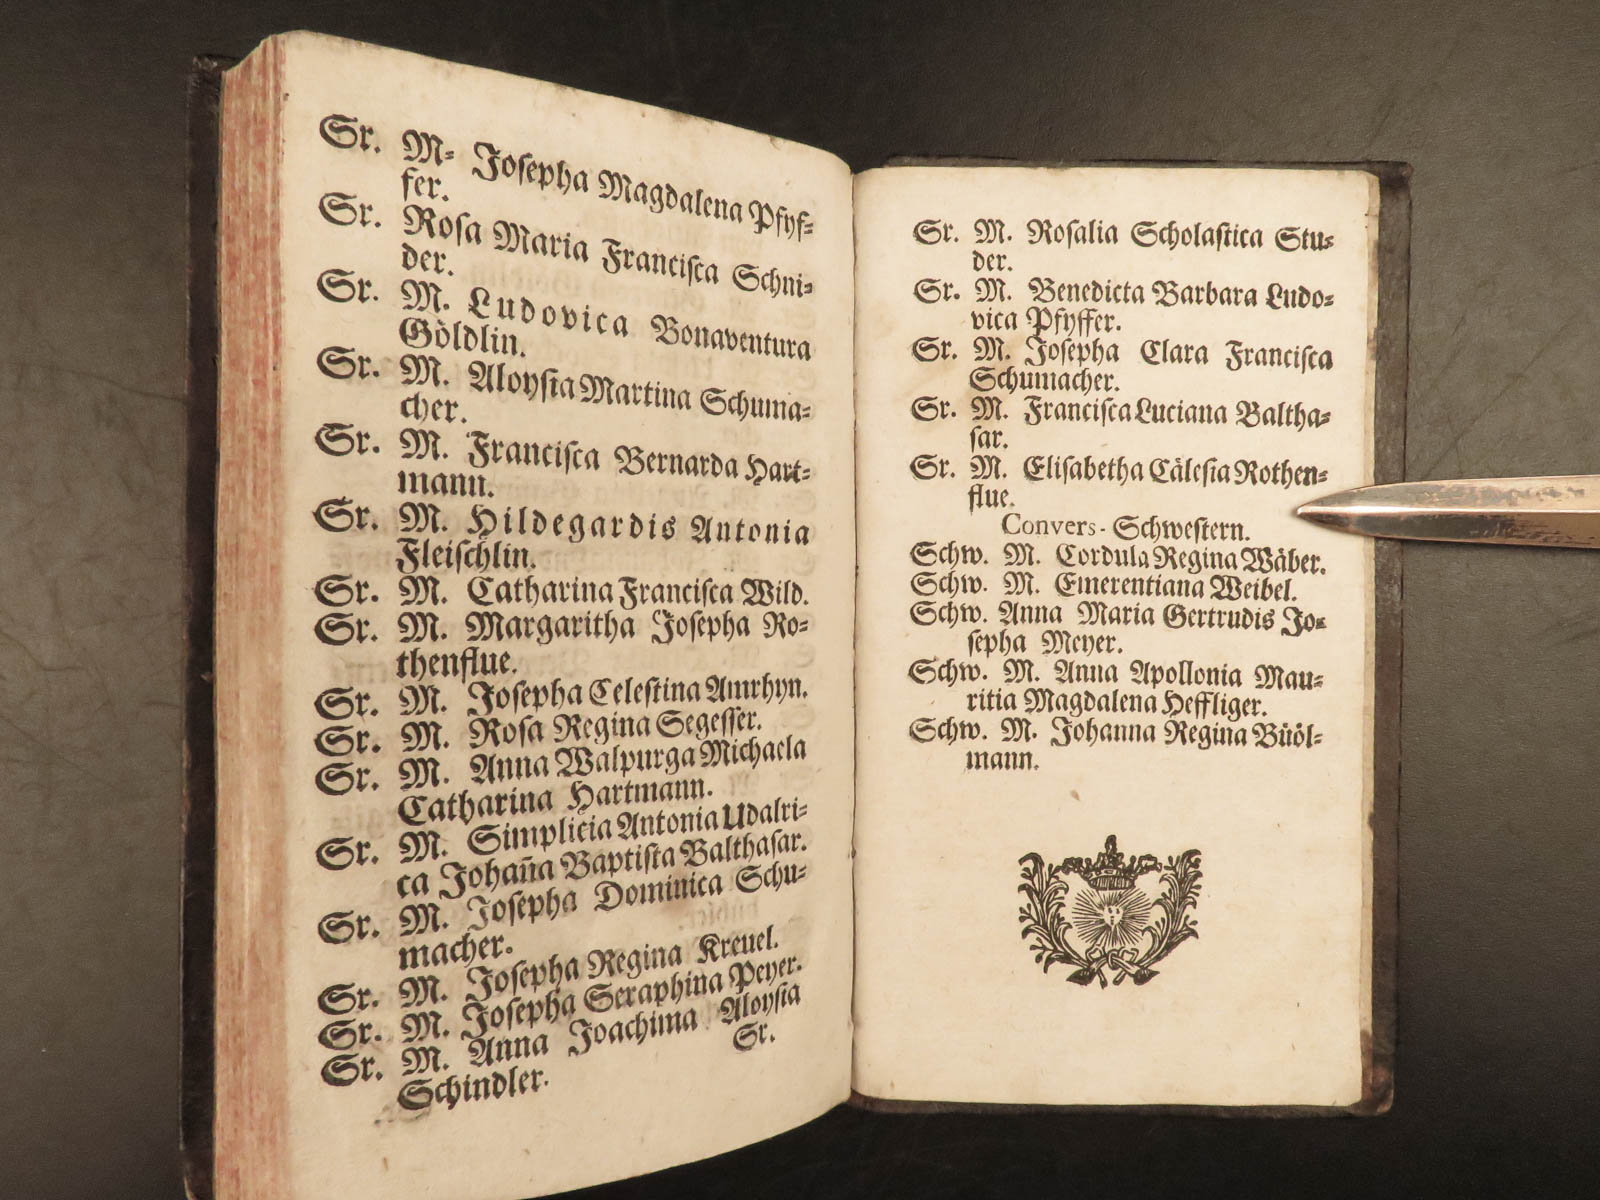 Sr. M⸗ Joſepha Magdalena Pfyf⸗
fer.
Sr. Roſa Maria Franciſca Schni⸗
der.
Sr. M. Ludovica Bonaventura
Göldlin.
Sr. M. Aloyſia Martina Schuma⸗
cher.
Sr. M. Franciſca Bernarda Hart⸗
mann.
Sr. M. Hildegardis Antonia
Fleiſchlin.
Sr. M. Catharina Franciſca Wild.
Sr. M. Margaritha Joſepha Ro⸗
thenflue.
Sr. M. Joſepha Celeſtina Amrhyn.
Sr. M. Roſa Regina Segeſſer.
Sr. M. Anna Walpurga Michaela
Catharina Hartmann.
Sr. M. Simplicia Antonia Udalri⸗
ca Johan̄a Baptiſta Balthaſar.
Sr. M. Joſepha Dominica Schu⸗
macher.
Sr. M. Joſepha Regina Kreuel.
Sr. M. Joſepha Seraphina Peyer.
Sr. M. Anna Joachima Aloyſia
Schindler.
Sr.
Sr. M. Roſalia Scholaſtica Stu⸗
der.
Sr. M. Benedicta Barbara Ludo⸗
vica Pfyffer.
Sr. M. Joſepha Clara Franciſca
Schumacher.
Sr. M. Franciſca Luciana Baltha⸗
ſar.
Sr. M. Eliſabetha Cäleſia Rothen⸗
flue.
Convers - Schweſtern.
Schw. M. Cordula Regina Wäber.
Schw. M. Emerentiana Weibel.
Schw. Anna Maria Gertrudis Jo⸗
ſepha Meyer.
Schw. M. Anna Apollonia Mau⸗
ritia Magdalena Heffliger.
Schw. M. Johanna Regina Büöl⸗
mann.